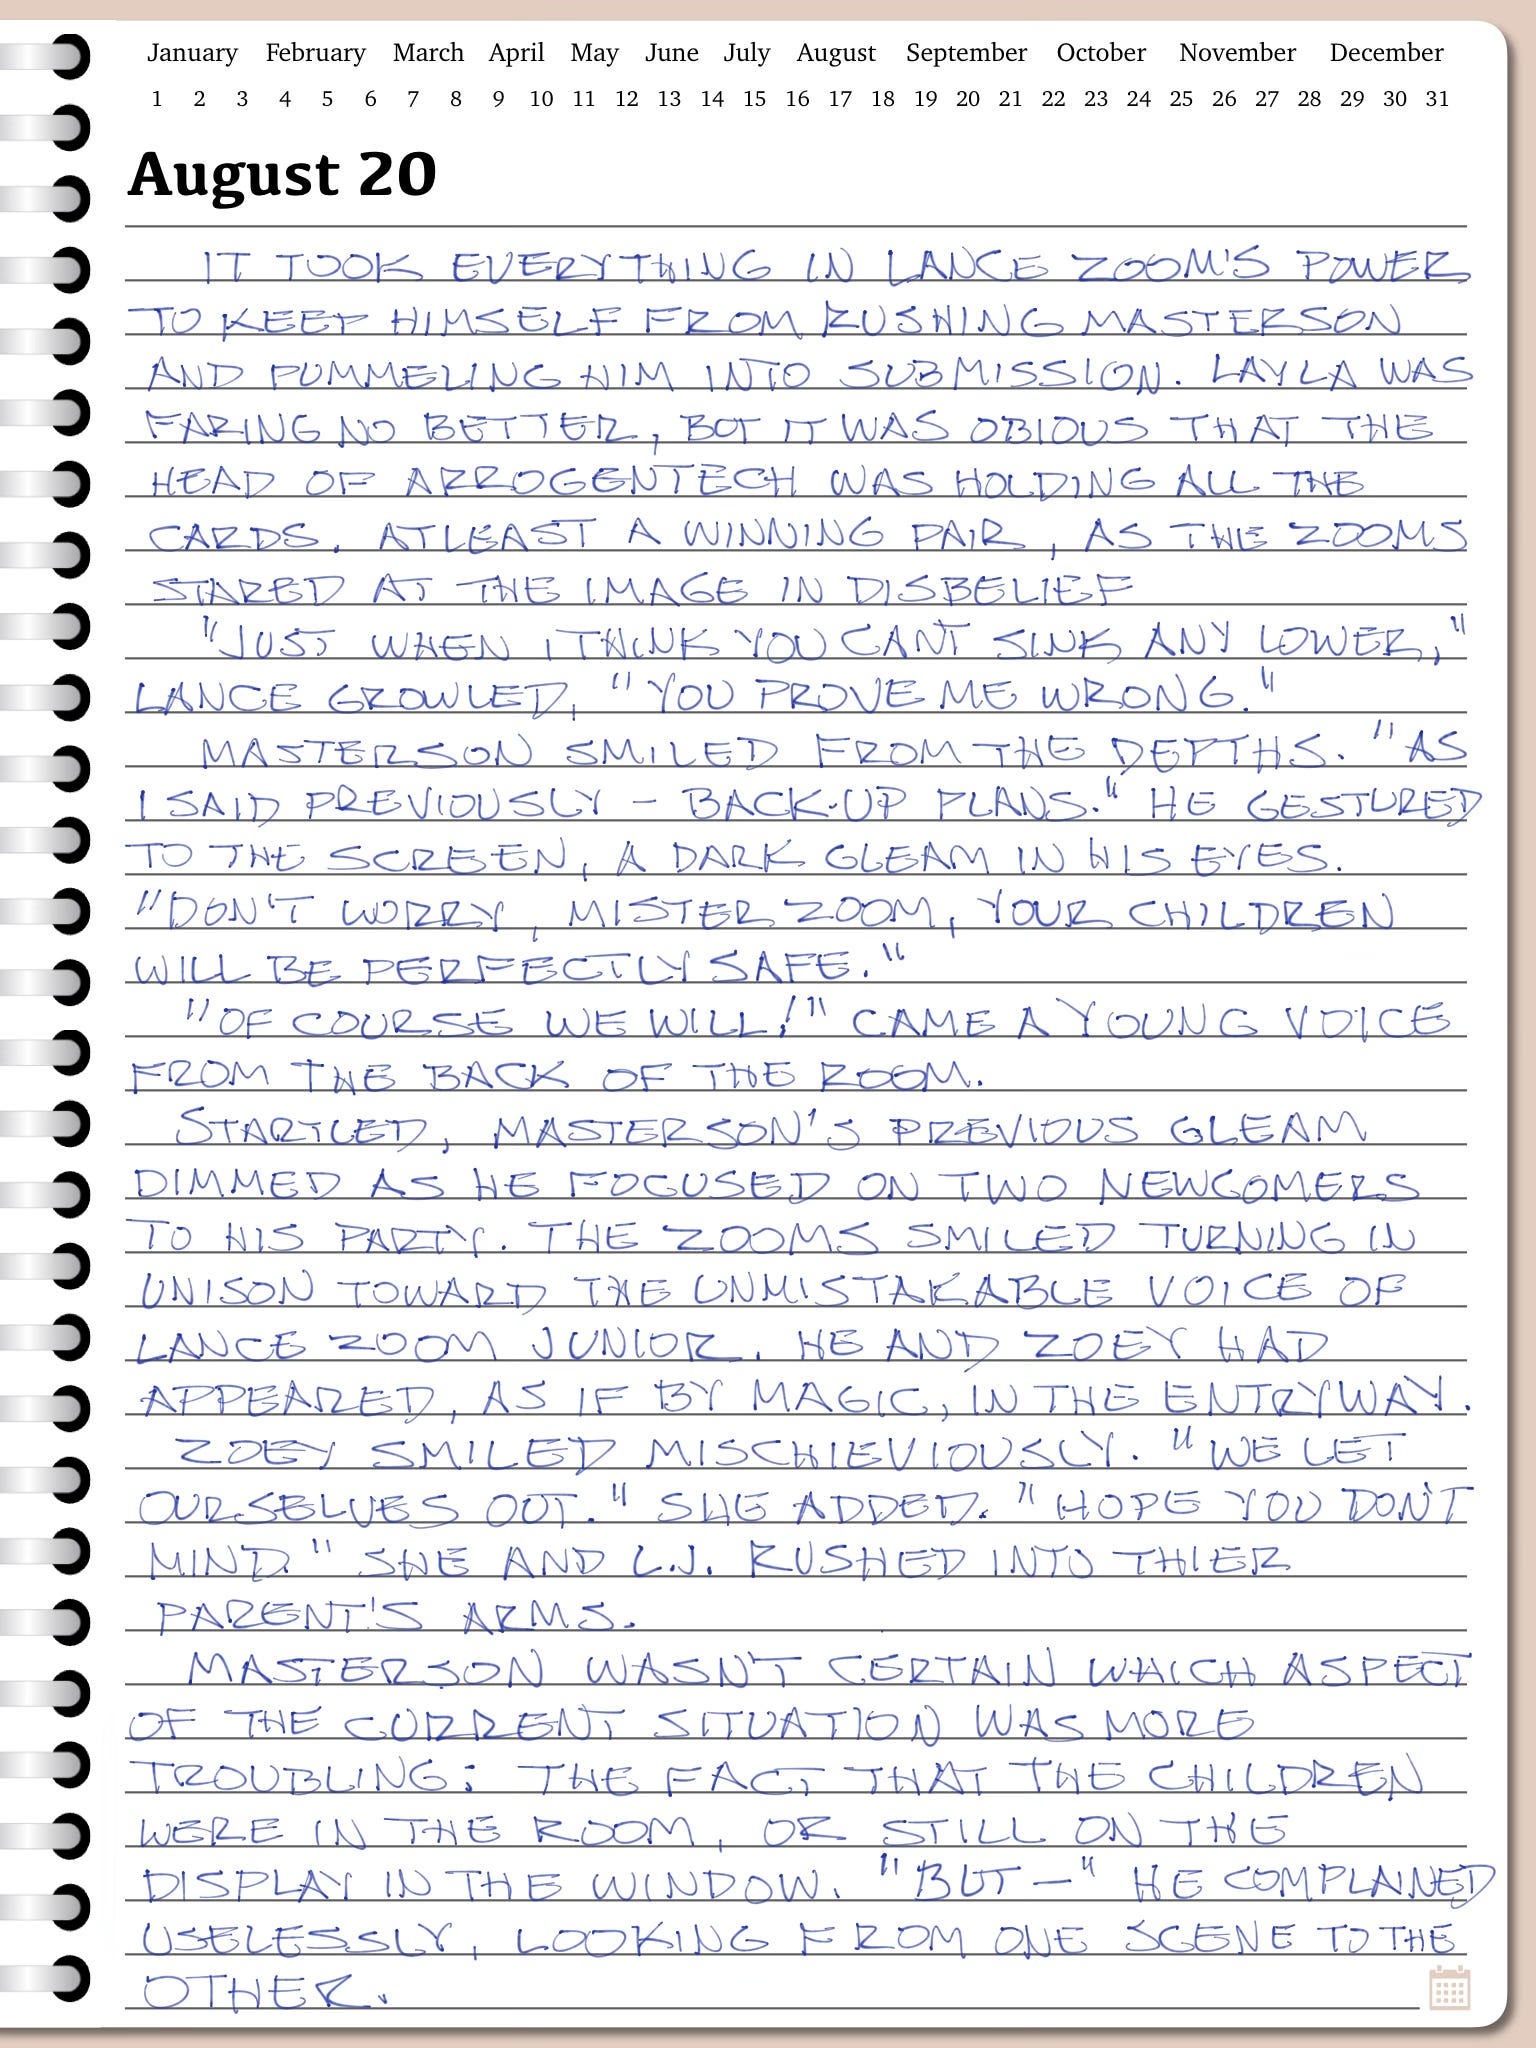 January February March April May June July August September October November December
1 2 3 4 5 6 7 8 9 10 11 12 13 14 15 16 17 18 19 20 21 22 23 24 25 26 27 28 29 30 31
August 20
IT TOOK EVERYTHING IN LANCE ZOOM'S POWER
TO KEEP HIMSELF FROM RUSHING MASTERSON
AND PUMMELING HIM INTO SUBMISSION. LAYLA WAS
FARING NO BETTER, BUT IT WAS OBIOUS THAT THE
HEAD OF ARROGENTECH WAS HOLDING ALL THE
CARDS. ATLEAST A WINNING PAIR, AS THE ZOOMS
STARED AT THE IMAGE IN DISBELIEF
"JUST WHEN I THINK YOU CAN'T SINK ANY LOWER,"
LANCE GROWLED, "YOU PROVE ME WRONG."
MASTERSON SMILED FROM THE DEPTHS. "AS
I SAID PREVIOUSLY – BACK-UP PLANS." HE GESTURED
TO THE SCREEN, A DARK GLEAM IN HIS EYES.
"DON'T WORRY, MISTER ZOOM, YOUR CHILDREN
WILL BE PERFECTLY SAFE."
"OF COURSE WE WILL!" CAME A YOUNG VOICE
FROM THE BACK OF THE ROOM.
STARTLED, MASTERSON'S PREVIOUS GLEAM
DIMMED AS HE FOCUSED ON TWO NEWCOMERS
TO HIS PARTY. THE ZOOMS SMILED TURNING IN
UNISON TOWARD THE UNMISTAKABLE VOICE OF
LANCE ZOOM JUNIOR. HE AND ZOEY HAD
APPEARED, AS IF BY MAGIC, IN THE ENTRYWAY.
ZOEY SMILED MISCHIEVIOUSLY. "WE LET
OURSELVES OUT." SHE ADDED. "HOPE YOU DON'T
MIND." SHE AND L.J. RUSHED INTO THIER
PARENT'S ARMS.
MASTERSON WASN'T CERTAIN WHICH ASPECT
OF THE CURRENT SITUATION WAS MORE
TROUBLING: THE FACT THAT THE CHILDREN
WERE IN THE ROOM, OR STILL ON THE
DISPLAY IN THE WINDOW. "BUT –" HE COMPLAINED
USELESSLY, LOOKING FROM ONE SCENE TO THE
OTHER.